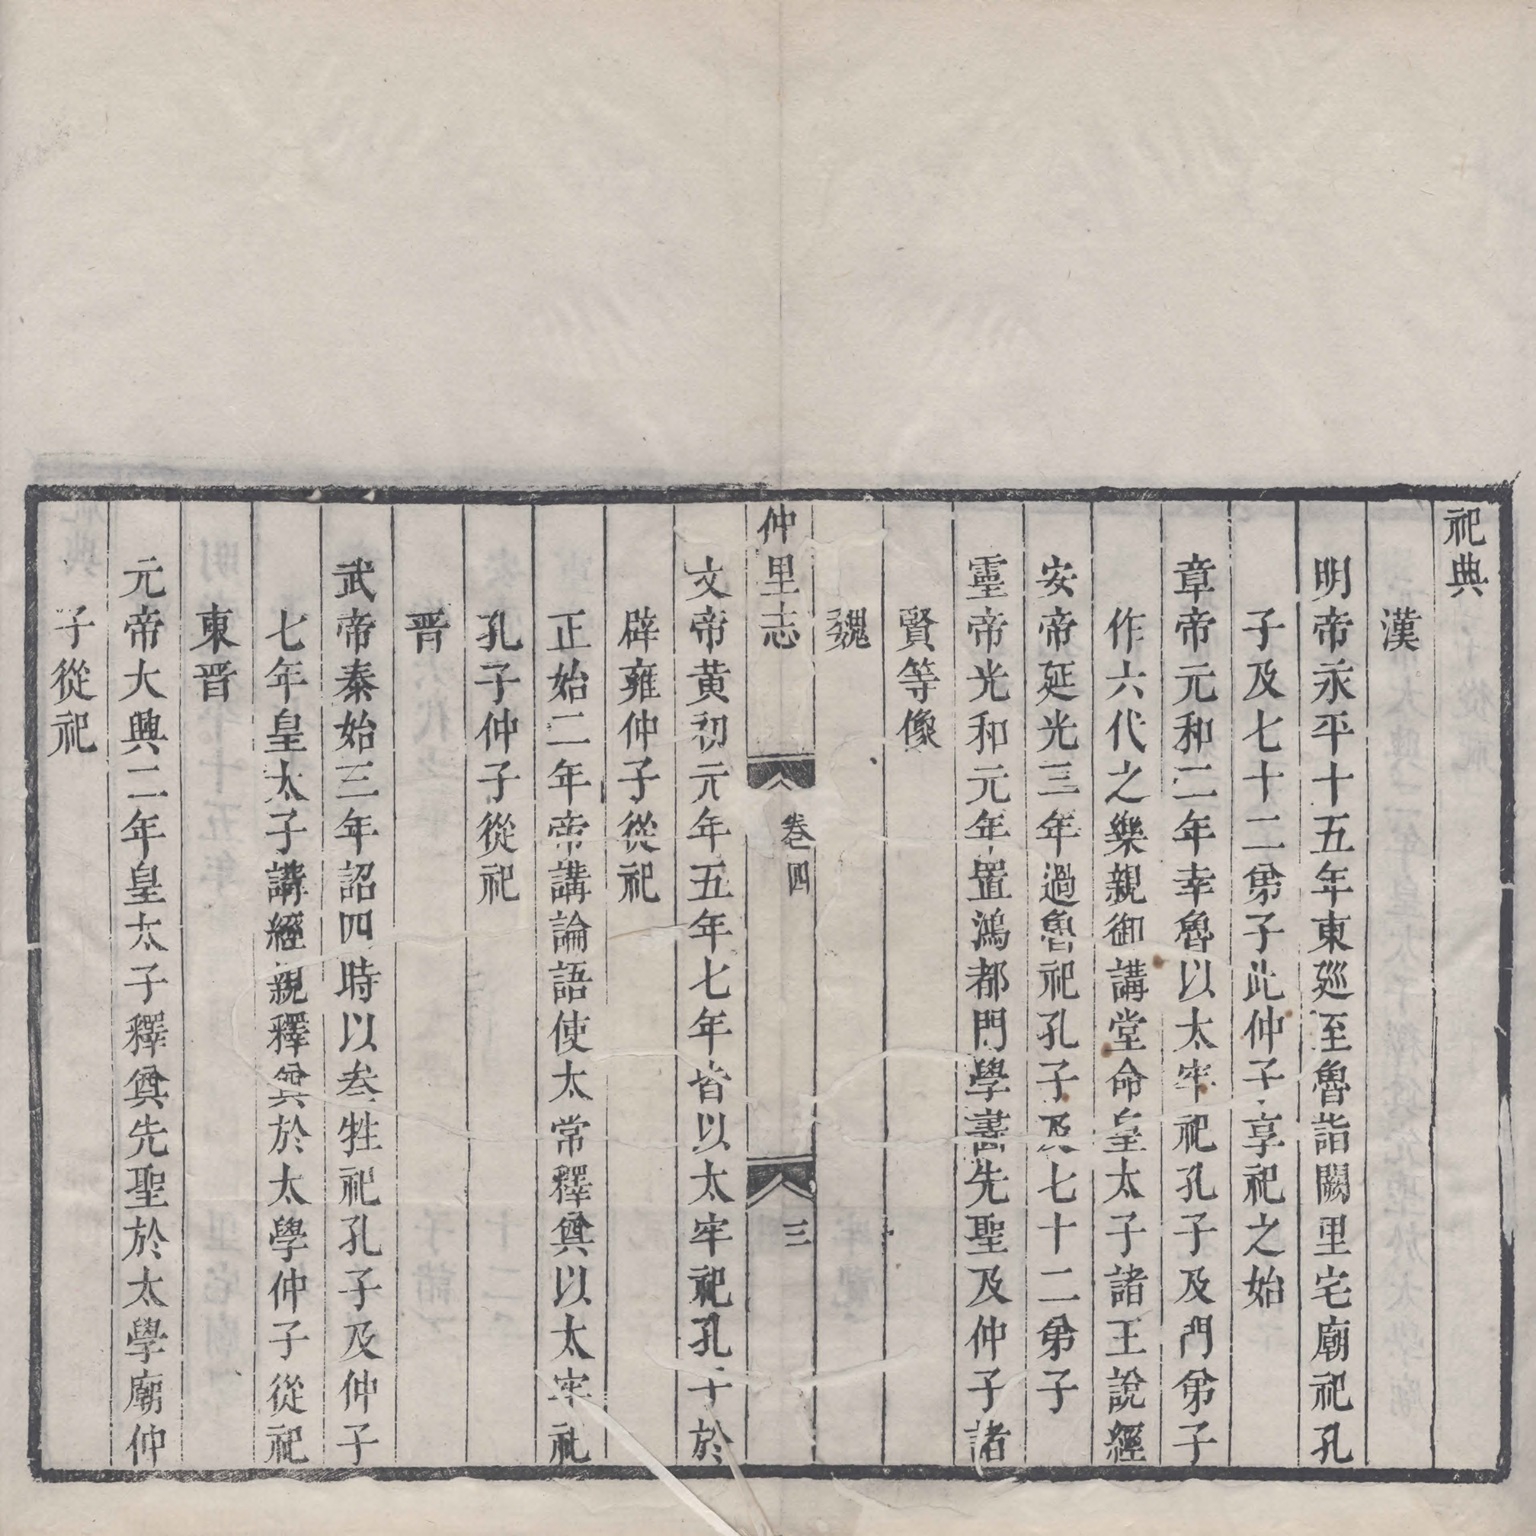 祀典
漢
明帝永平十五年東廵至魯詣闕里宅廟祀孔
子及七十二弟子此仲子享祀之始
章帝元和二年幸魯以太牢祀孔子及門弟子
作六代之樂親御講堂命皇太子諸王說經
安帝延光三年過魯祀孔子及七十二弟子
靈帝光和元年置鴻都門學畫先聖及仲子諸
賢等像
魏
仲里志
卷四
三
文帝黄初元年五年七年皆以太牢祀孔子於
辟雍仲子從祀
正始二年帝講論語使太常釋奠以太牢祀
孔子仲子從祀
晋
武帝秦始三年詔四時以叁牲祀孔子及仲子
七年皇太子講經親釋奠於太學仲子從祀
東晋
元帝大興二年皇太子釋奠先聖於太學廟仲
子從祀